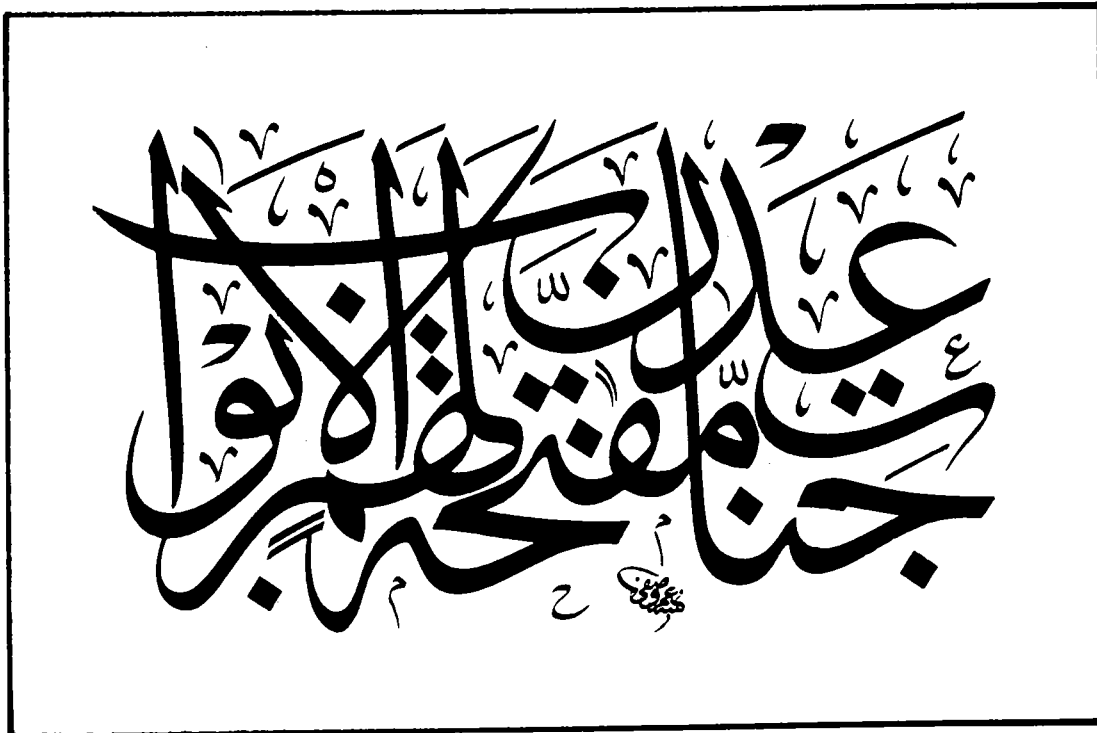 جنات عدن مفتحة لهم الأبواب